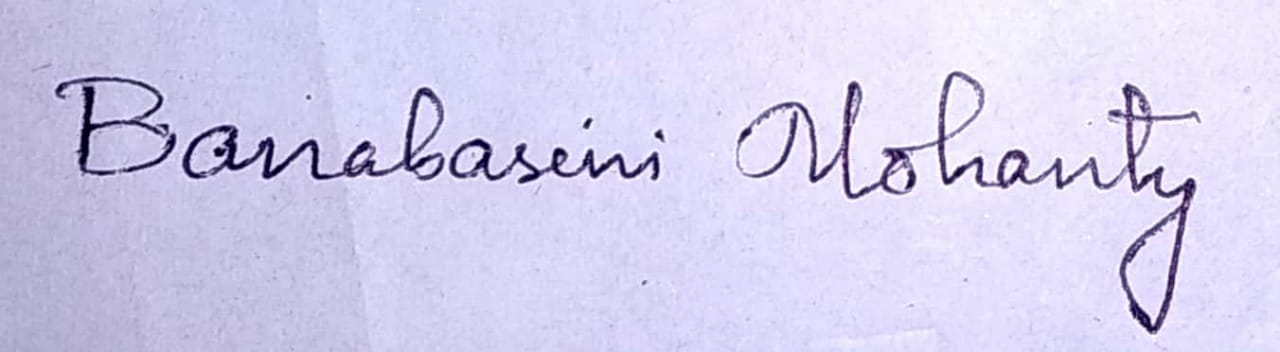 Banabasini Mohanty